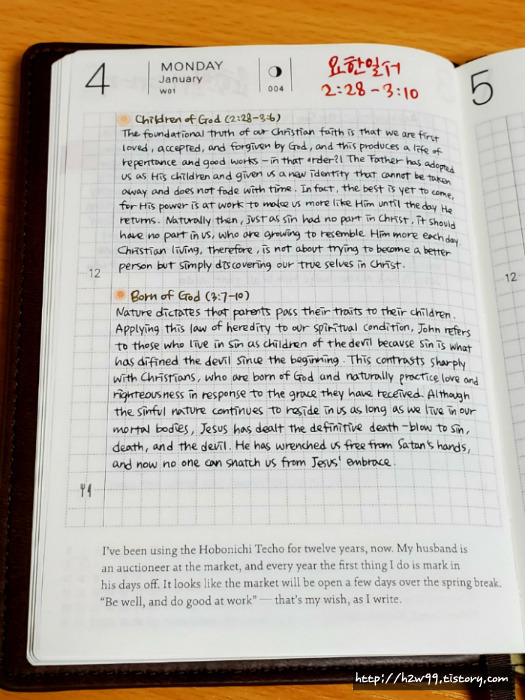 4
MONDAY
January
W01
004
요한일서
2:28-3:10
5
Children of God (2:28-3:6)
The foundational truth of our Christian faith is that we are first
loved, accepted, and forgiven by God, and this produces a life of
repentance and good works - in that order?! The Father has adopted
us as His children and given us a new identity that cannot be taken
away and does not fade with time. In fact, the best is yet to come,
for His power is at work to make us more like Him until the day He
returns. Naturally then, just as sin had no part in Christ, it should
have no part in us, who are growing to resemble Him more each day
Christian living, therefore, is not about trying to become a better
person but simply discovering our true selves in Christ.
12
12
Born of God (3:7-10)
Nature dictates that parents pass their traits to their children.
Applying this law of heredity to our spiritual condition, John refers
to those who live in sin as children of the devil because sin is what
has difined the devil since the beginning. This contrasts sharply
with Christians, who are born of God and naturally practice love and
righteousness in response to the grace they have received. Although
the sinful nature continues to reside in us as long as we live in our
mortal bodies, Jesus has dealt the definitive death-blow to sin,
death, and the devil. He has wrenched us free from Satan's hands,
and now no one can snatch us from Jesus' embrace.
I've been using the Hobonichi Techo for twelve years, now. My husband is
an auctioneer at the market, and every year the first thing I do is mark in
his days off. It looks like the market will be open a few days over the spring break.
"Be well, and do good at work" — that's my wish, as I write.
http://h2w99.tistory.com